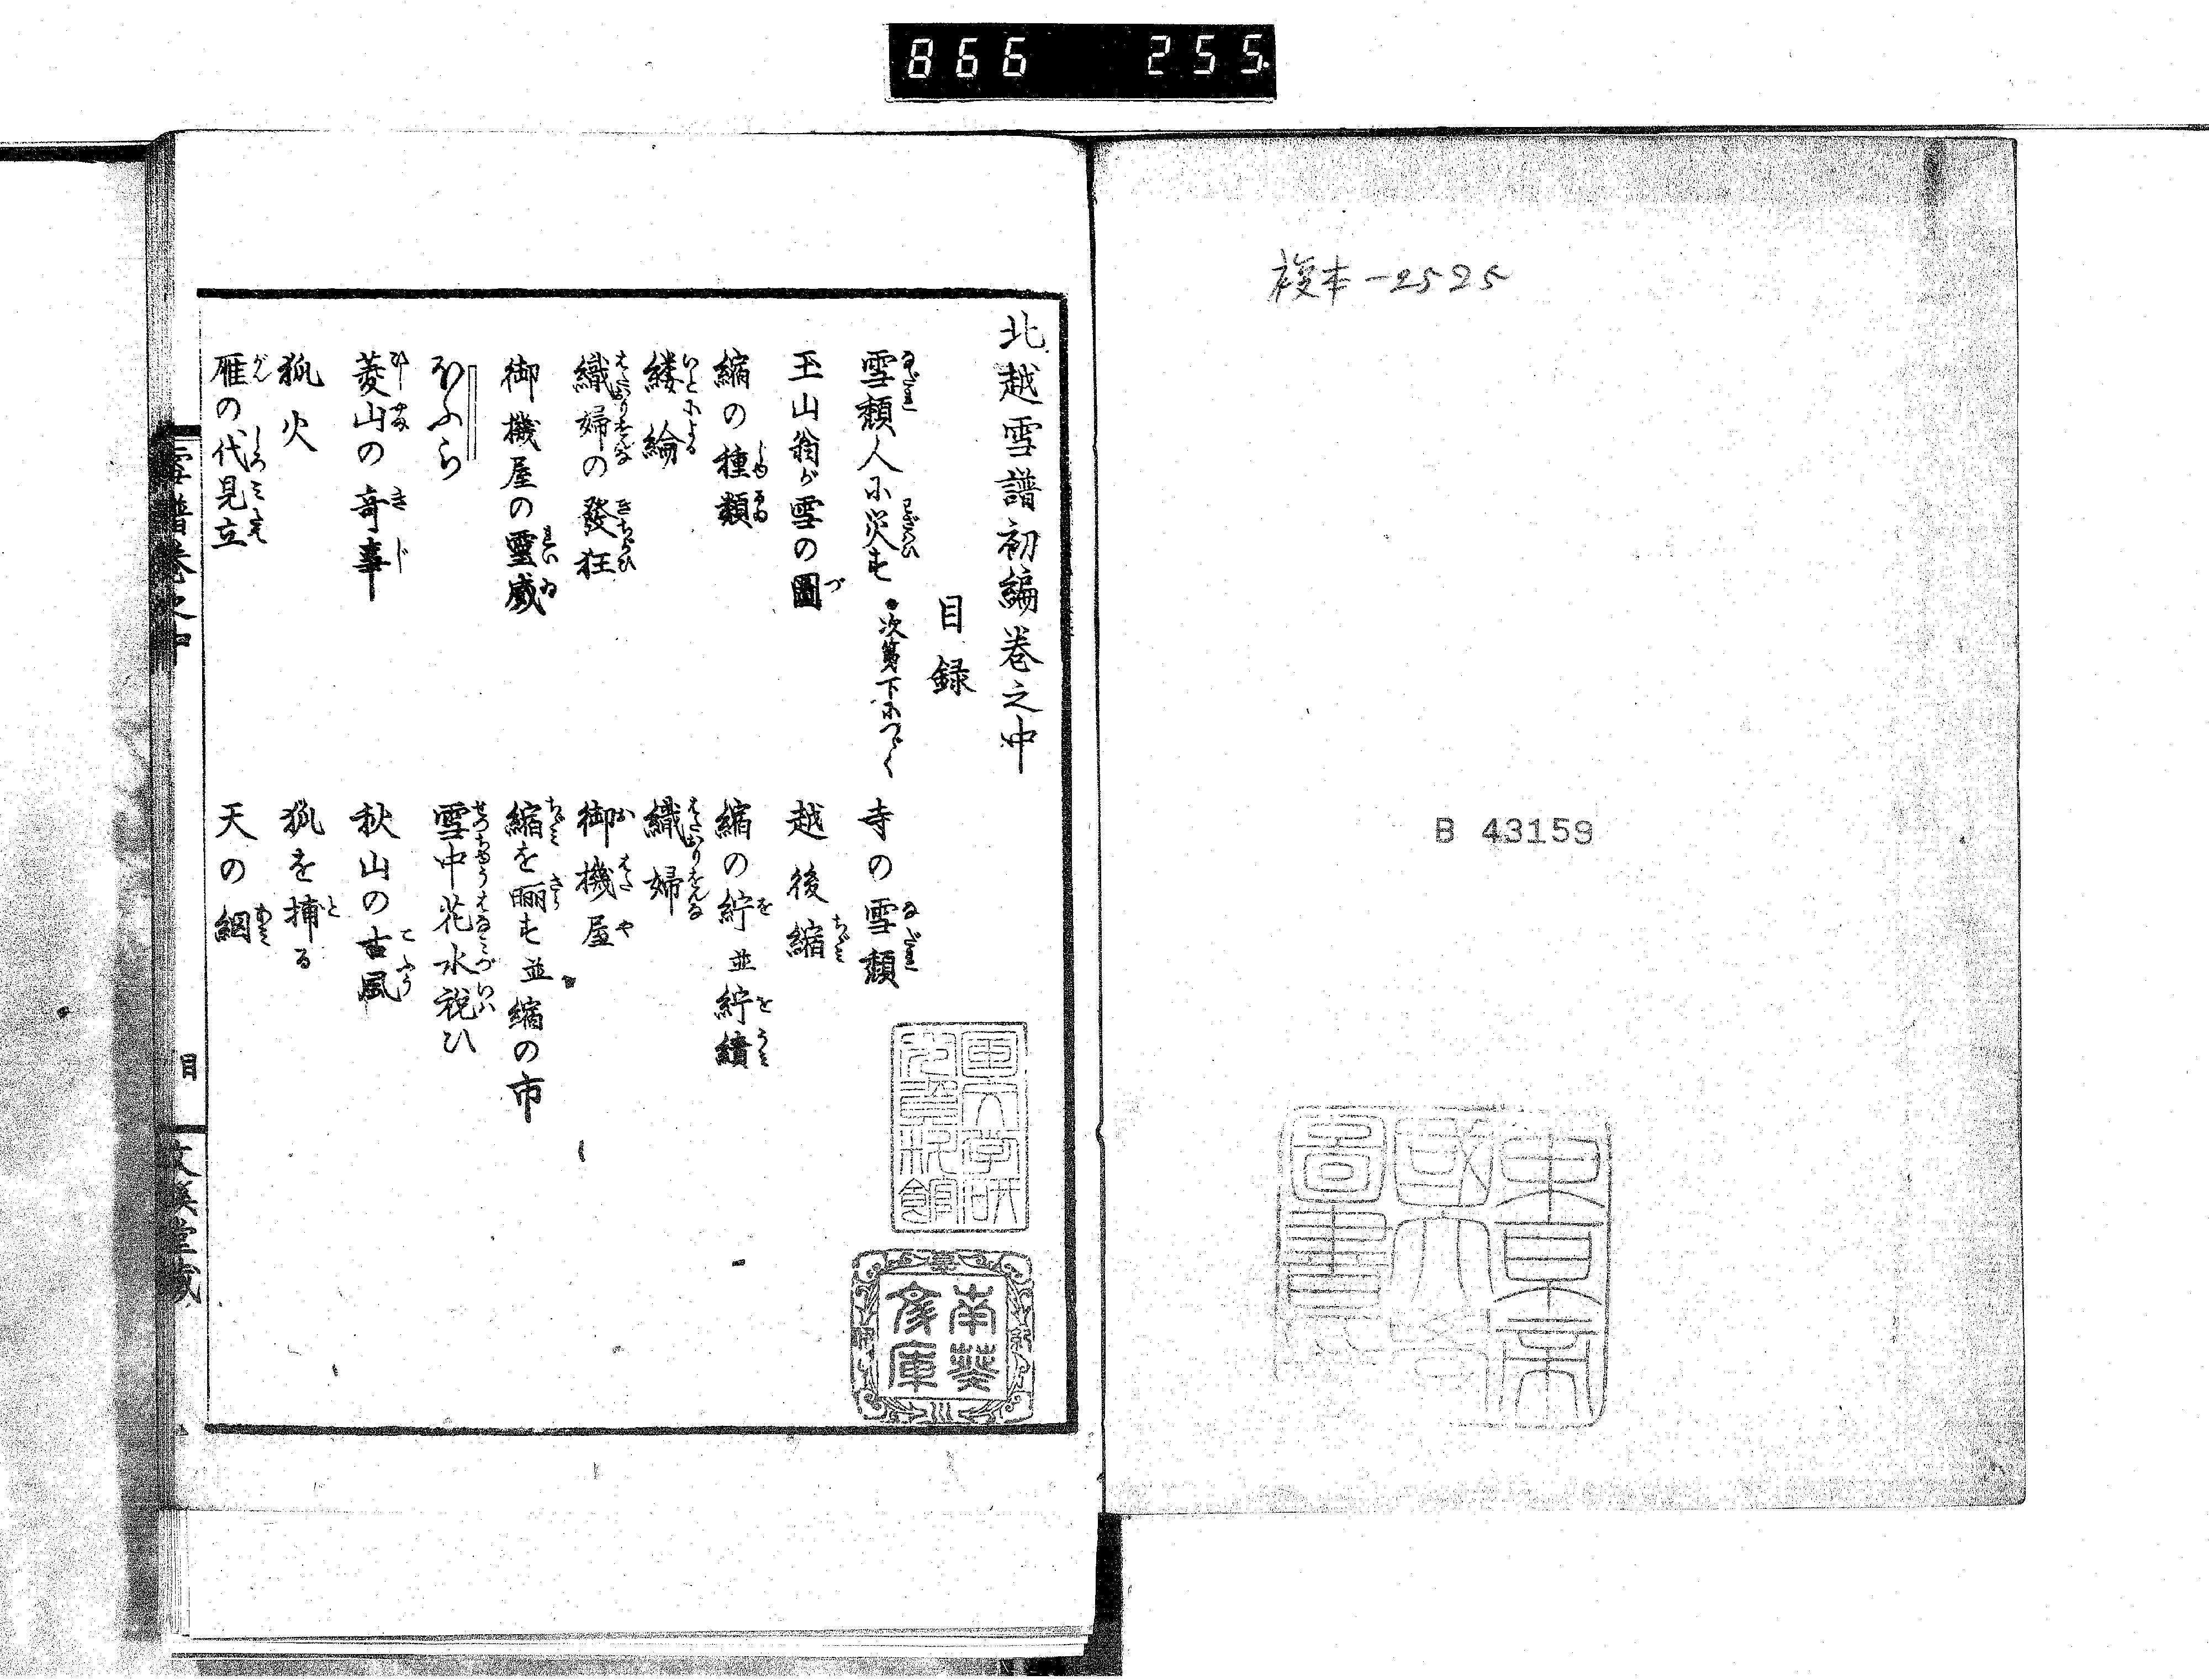 866 255
複本-2525
B 43159
東京帝
國大學
圖書
北越雪譜初編巻之中
目録
雪頽人に災す ●次第下につゞく
寺の雪頽
玉山翁が雪の圖
越後縮
縮の種類
縮の紵並紵績
縷綸
織婦
織婦の發狂
御機屋
御機屋の霊威
縮を曬す並縮の市
ほふら
雪中花水祝ひ
菱山の奇事
秋山の古風
狐火
狐を捕る
雁の代見立
天の綱
國文学研
究資料館
南葵
文庫
雪譜巻之中
目
文溪堂蔵